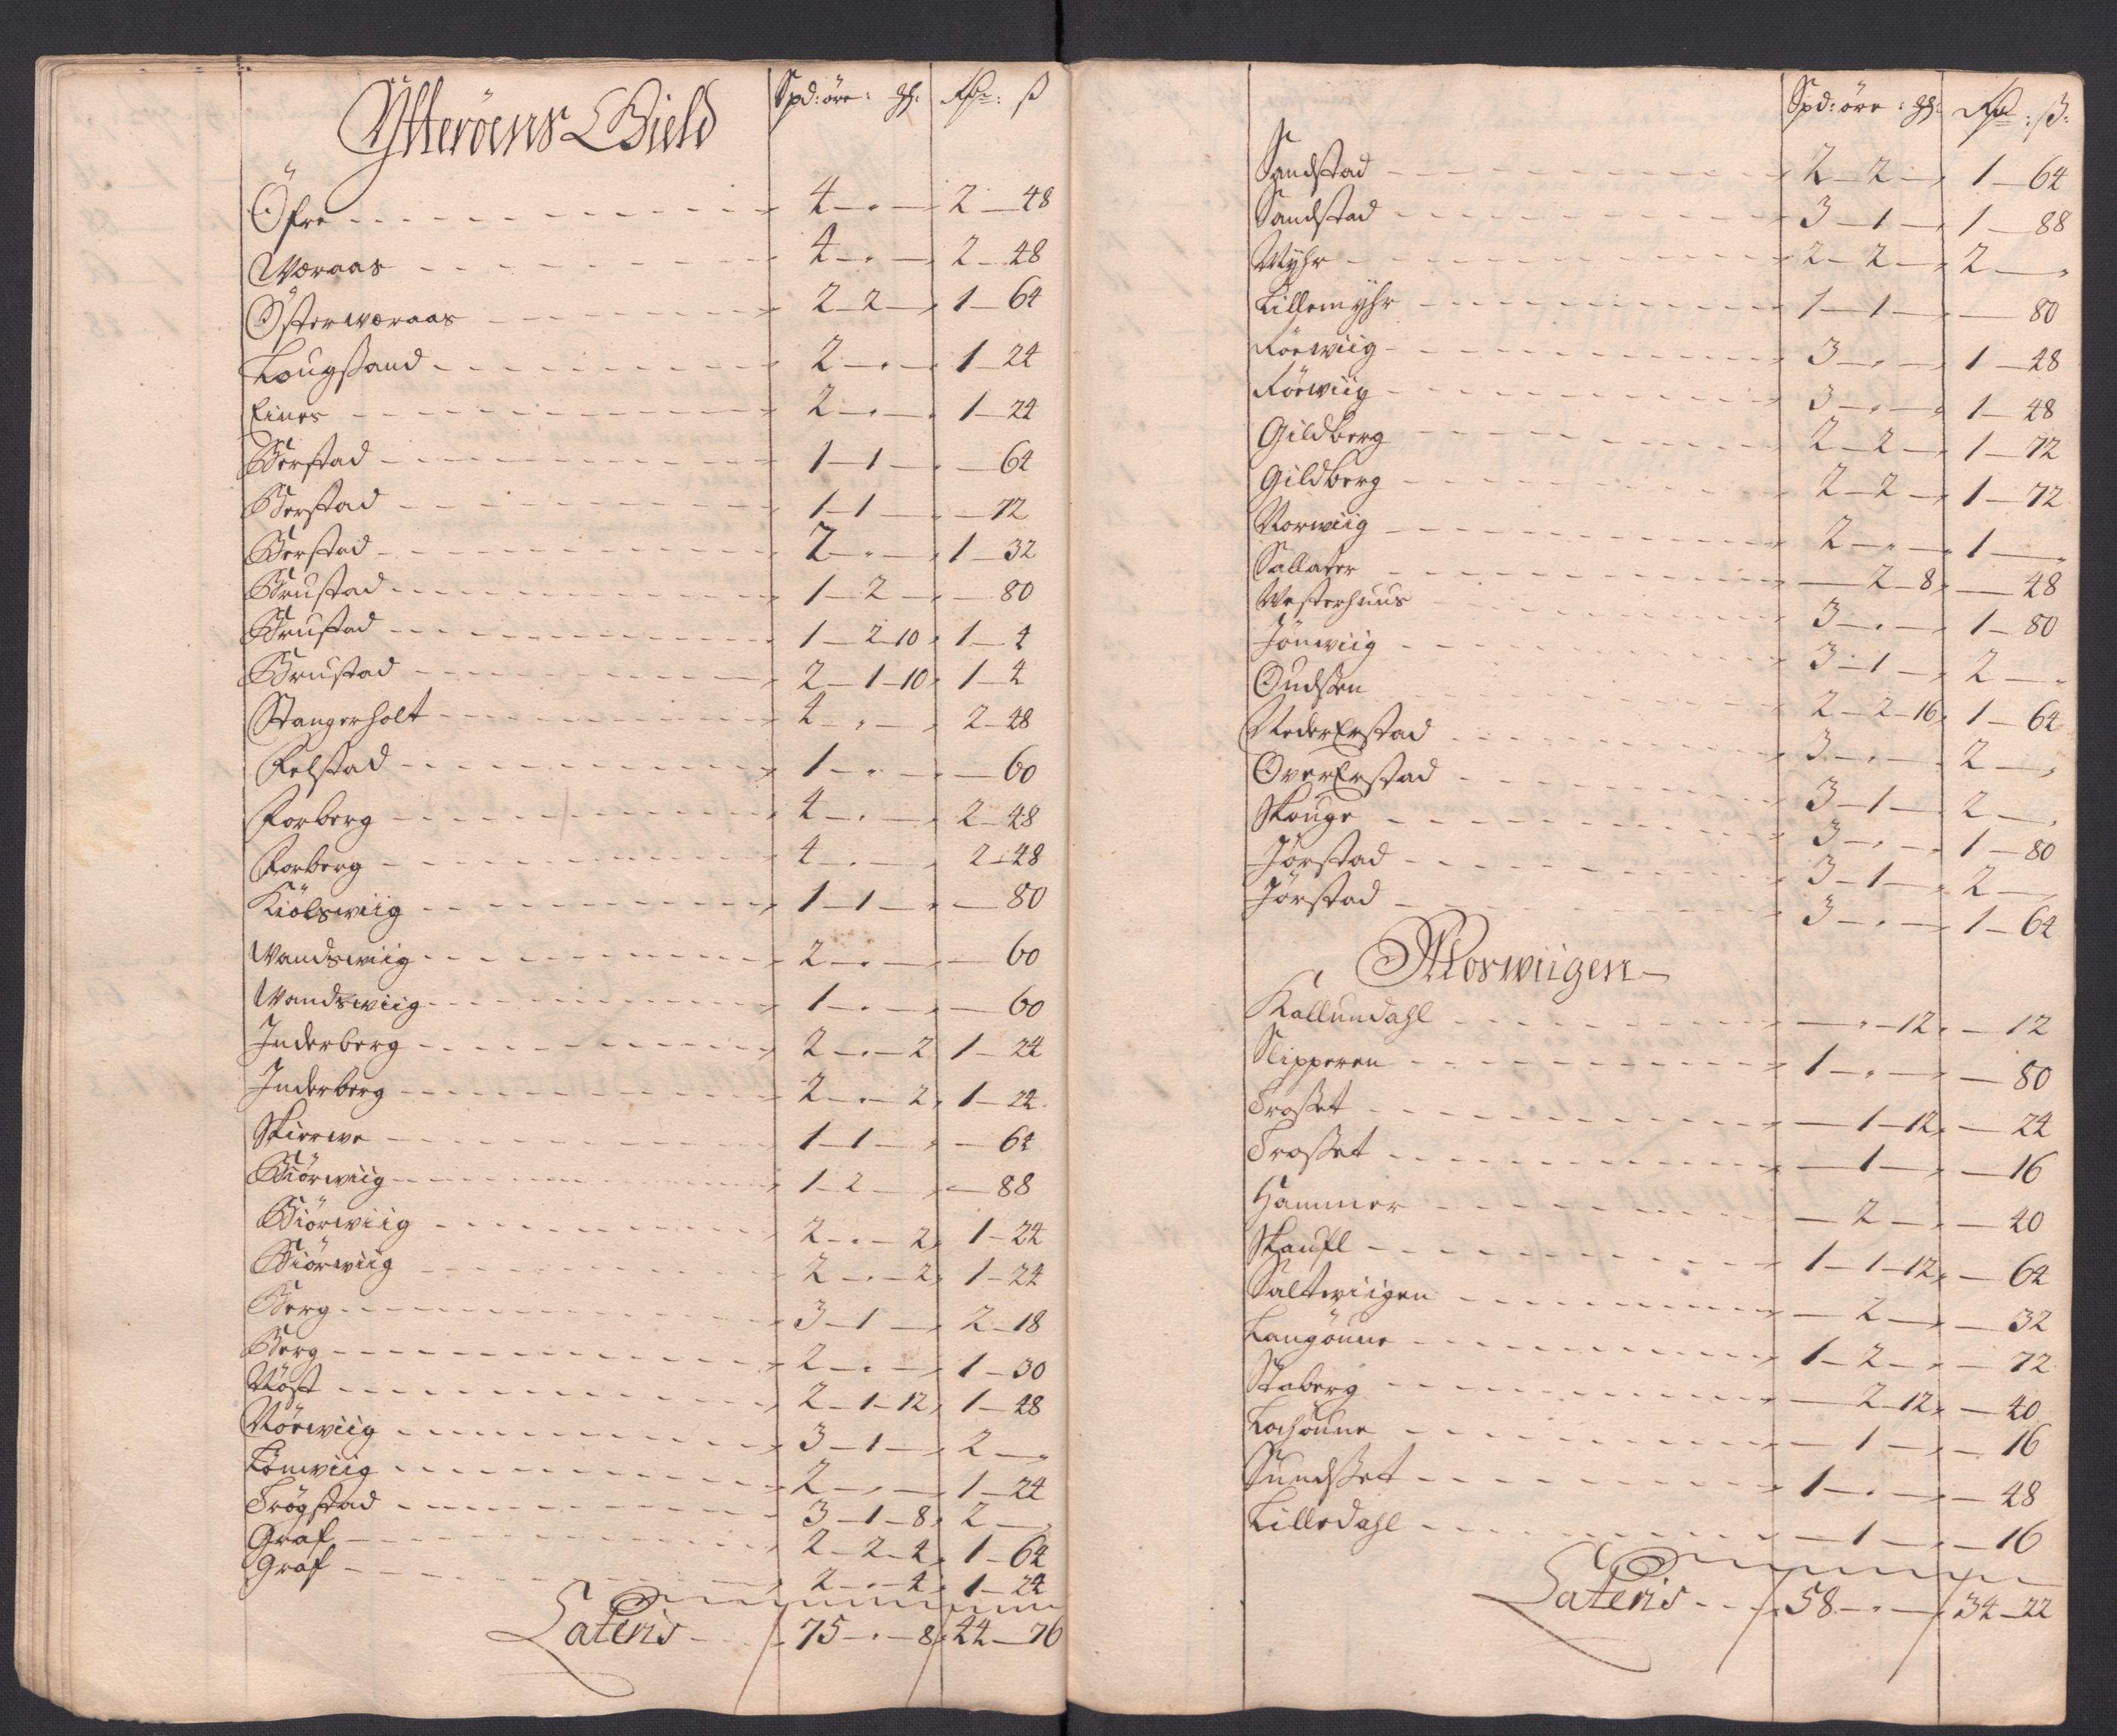 Ytterøens Gield Spd: øre: gl: Rdr: ß
Öfre 4 — „ — 2 — 48
Wæraas 4 — „ — 2 — 48
Österwæraas 2 — 2 — „ 1 — 64
Lougsand 2 — „ — 1 — 24
Eines 2 — „ — 1 — 24
Berstad 1 — 1 — „ — 64
Berstad 1 — 1 — „ — 72
Berstad 2 — „ — „ 1 — 32
Brustad 1 — 2 — „ — 80
Brustad 1 — 2 — 10 „ 1 — 4
Brustad 2 — 1 — 10 „ 1 — 4
Stangerholt 4 — „ — „ 2 — 48
Felstad 1 — „ — „ — 60
Forberg 4 — „ — „ 2 — 48
Forberg 4 — „ — „ 2 — 48
Kiölswiig 1 — 1 — „ — 80
Wandswiig 2 — „ — „ — 60
Wandswiig 1 — „ — „ — 60
Inderberg 2 — „ — 2 1 — 24
Inderberg 2 — „ — 2 „ 1 — 24
Skierwe 1 — 1 — „ — 64
Biörwiig 1 — 2 — „ — 88
Biörwiig 2 — „ — 2 „ 1 — 24
Biörwiig 2 — „ — 2 „ 1 — 24
Berg 3 — 1 — „ 2 — 18
Berg 2 — „ — „ 1 — 30
Röst 2 — 1 — 12 „ 1 — 48
Nörwiig 3 — 1 — „ 2 — „
Lönwiig 2 — „ — „ 1 — 24
Trögstad 3 — 1 — 8 „ 2 — „
Graf 2 — 2 — 4 „ 1 — 64
Graf 2 — „ — 4 „ 1 — 24
Lateris 75 — „ — 8 „ 44 — 76
Spd: øre: gl: Rdr: ß:
Sandstad 2 — 2 — „ 1 — 64
Sandstad 3 — 1 — „ 1 — 88
Myhr 2 — 2 — „ 2 — „
Lillemyhr 1 — 1 — „ — 80
Rörwiig 3 — „ — „ 1 — 48
Rörwiig 3 — „ — „ 1 — 48
Gildberg 2 — 2 — „ 1 — 72
Gildberg 2 — 2 — „ 1 — 72
Norwiig 2 — „ — „ 1 — „
Saltater — 2 — 8 „ — 48
Westerhuus 3 — „ — „ 1 — 80
Jönwiig 3 — 1 — „ 2 — „
Oudsen 2 — 2 — 16 „ 1 — 64
NederErstad 3 — „ — „ 2 — „
OverErstad 3 — 1 — „ 2 — „
Skouge 3 — „ — „ 1 — 80
Jörstad 3 — 1 — „ 2 — „
Jörstad 3 — „ — „ 1 — 64
Moswiigen
Kallundahl — „ — 12 „ — 12
Slipperen 1 — „ — „ — 80
Trosset — 1 — 12 „ — 24
Trosset — 1 — „ — 16
Hammer — 2 — „ — 40
Skaufl 1 — 1 — 12 „ — 64
Saltwiigen — 2 — „ — 32
Langöune 1 — 2 — „ — 72
Staberg — 2 — 12 „ — 40
Lochöune — 1 — „ — 16
Sundsset 1 — „ — „ — 48
Lilledahl — 1 — „ — 16
Lateris 58 — „ — 34 — 22